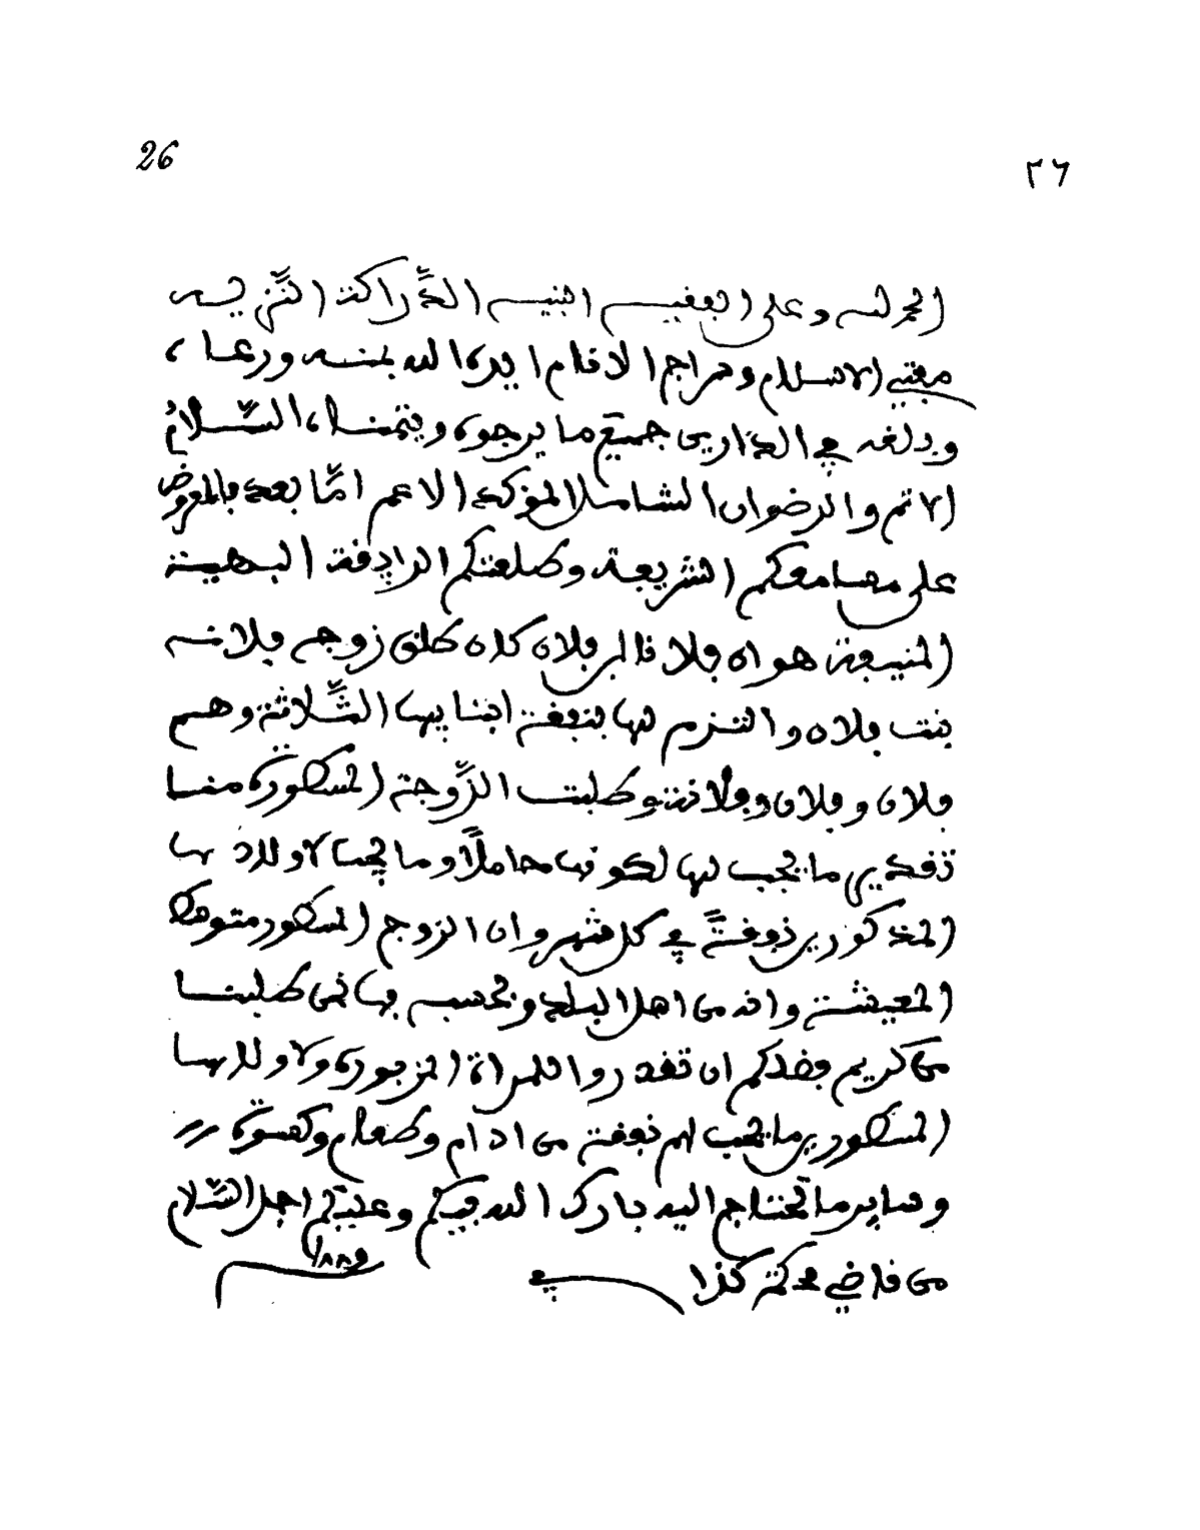 26
٢٦
الحمد لله وعلى الفقيه النبيه الدَّراكة النَّزيه
مفتي الاسلام ومراجع الانام ايده الله بمنه ورعاه
وبلغه في الدارين جميع ما يرجوه ويتمناه السَّلامُ
الاتم والرضوان الشامل المؤكد الاعم امّا بعد فالمعروض
على مسامعكم الشريفة وطلعتكم الرايقة البهية
المنيفة هو ان فلانا بن فلان كان طلق زوجه فلانه
بنت فلان والتزم لها بنفقة ابنايها الثَّلاثة وهم
فلان وفلان وفلانة وطلبت الزَّوجة المسطورة منا
تقدير ما يجب لها لكونها حاملاً وما يجب لاولادها
المذكورين نفقةً في كل شهر وان الزوج المسطور متوسط
المعيشة وانه من اهل البلد ونحسبه بها نمى طلبنا
من كريم فضلكم ان تقدروا للمراة المزبوره ولاولادها
المسطورين ما يجب لهم نفقة من ادام وطعام وكسوة
وساير ما تحتاج اليه بارك الله فيكم وعليكم اجل السَّلام
من قاضي محكمة كذا في ١٨٨٩